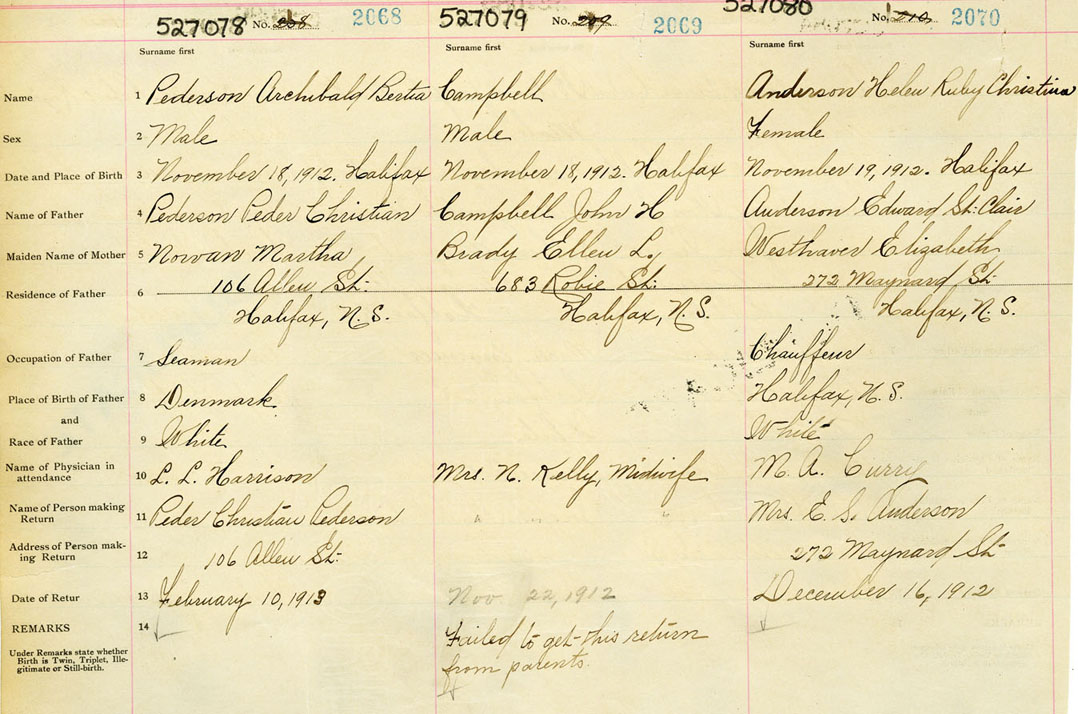 527078 No. 208 2068 527079 No. 209 2069 527080 No. 210 2070
Surname first Surname first Surname first
Name 1 Pederson Archibald Bertia Campbell Anderson Helen Ruby Christina
Sex 2 Male Male Female
Date and Place of Birth 3 November 18, 1912. Halifax November 18, 1912. Halifax November 19, 1912. Halifax
Name of Father 4 Pederson Peder Christian Campbell John H Anderson Edward St. Clair
Maiden Name of Mother 5 Nowan Martha Brady Ellen L. Westhaver Elizabeth
Residence of Father 6 106 Allen St. 683 Robie St. 272 Maynard St
Halifax, N.S. Halifax, N.S. Halifax, N.S.
Occupation of Father 7 Seaman Chauffeur
Place of Birth of Father 8 Denmark Halifax, N.S.
and
Race of Father 9 White White
Name of Physician in
attendance 10 L. L. Harrison Mrs. N. Kelly, Midwife M. A. Curry
Name of Person making
Return 11 Peder Christian Pederson " " " Mrs. E. S. Anderson
Address of Person mak-
ing Return 12 106 Allen St. 272 Maynard St.
Date of Retur 13 February 10, 1913 Nov 22, 1912 December 16, 1912
REMARKS 14 Failed to get this return
from parents.
Under Remarks state whether
Birth is Twin, Triplet, Ille-
gitimate or Still-birth.